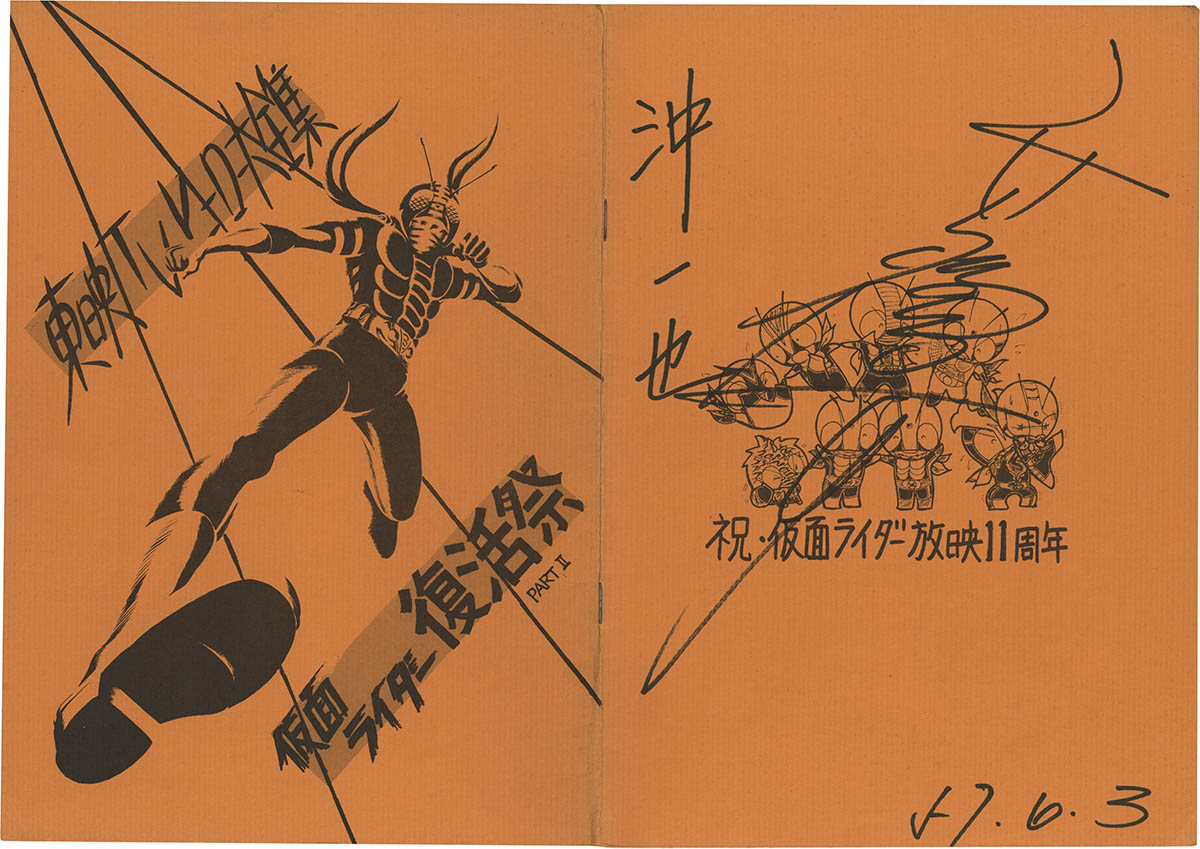 東映
仮面
ライダー
復活祭
PART II
沖一也
祝・仮面ライダー放映11周年
57.6.3